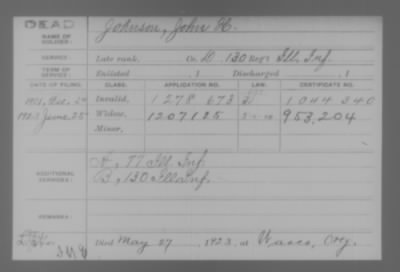 DEAD
NAME OF SOLDIER: Johnson, John H.
SERVICE: Late rank, Co. D, 130 Reg't Ill. Inf.
TERM OF SERVICE: Enlisted , 1 Discharged , 1
DATE OF FILING. CLASS. APPLICATION NO. LAW. CERTIFICATE NO.
Invalid, 1278 673 1044340
1923 June 25 Widow, 1207125 953,204
Minor,
ADDITIONAL SERVICES: 77 Ill. Inf.
B, 130 Ill. Inf.
REMARKS:
Died May 27, 1923, at